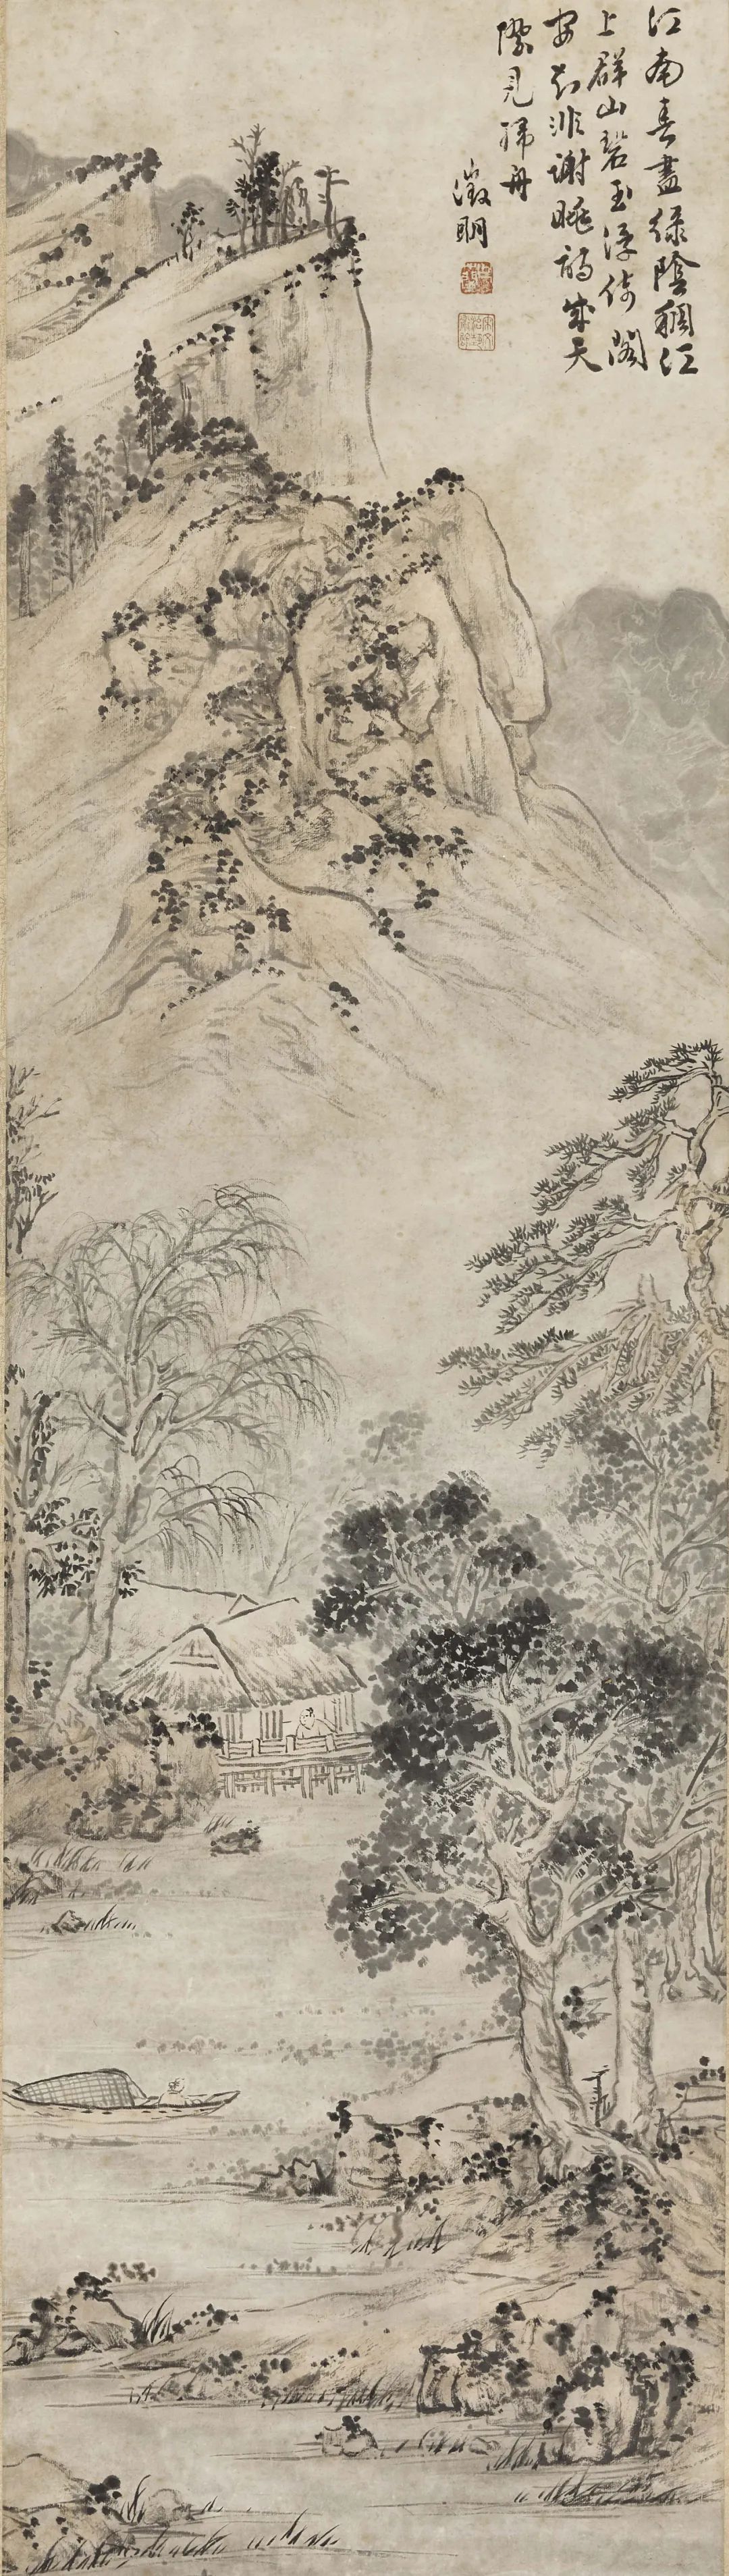 江南春盡綠陰稠江
上群山碧玉浮倚閣
安知非謝眺詩成天
際見歸舟
澂明